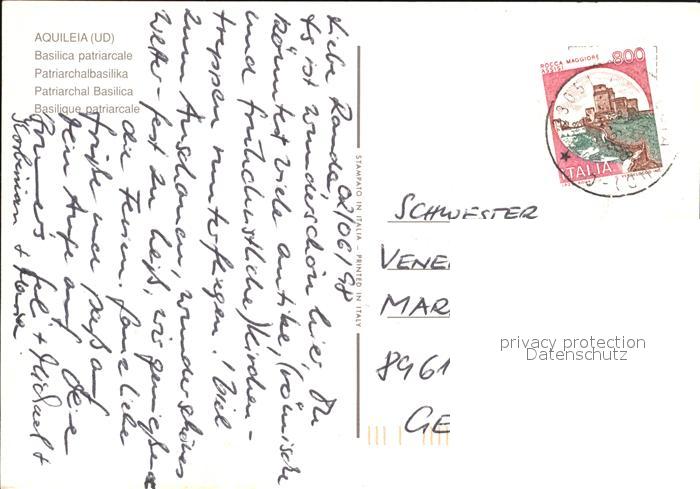 AQUILEIA (UD)
Basilica patriarcale
Patriarchalbasilika
Patriarchal Basilica
Basilique patriarcale
02/06/98
Es ist wunderschön hier, Du
könntest viele antike, (römische
und frühchristliche) Kirchen-
treppen runterfliegen! Viel
zum Anschauen, wunderschönes
Wetter - fast zu heiß, wir genießen
die Ferien. Ganz liebe
Grüße und
ein Auge auf
+ Michael +
STAMPATO IN ITALIA - PRINTED IN ITALY
ROCCA MAGGIORE
ASSISI
800
ITALIA
SCHWESTER
VENE
MAR
8961
GE
privacy protection
Datenschutz